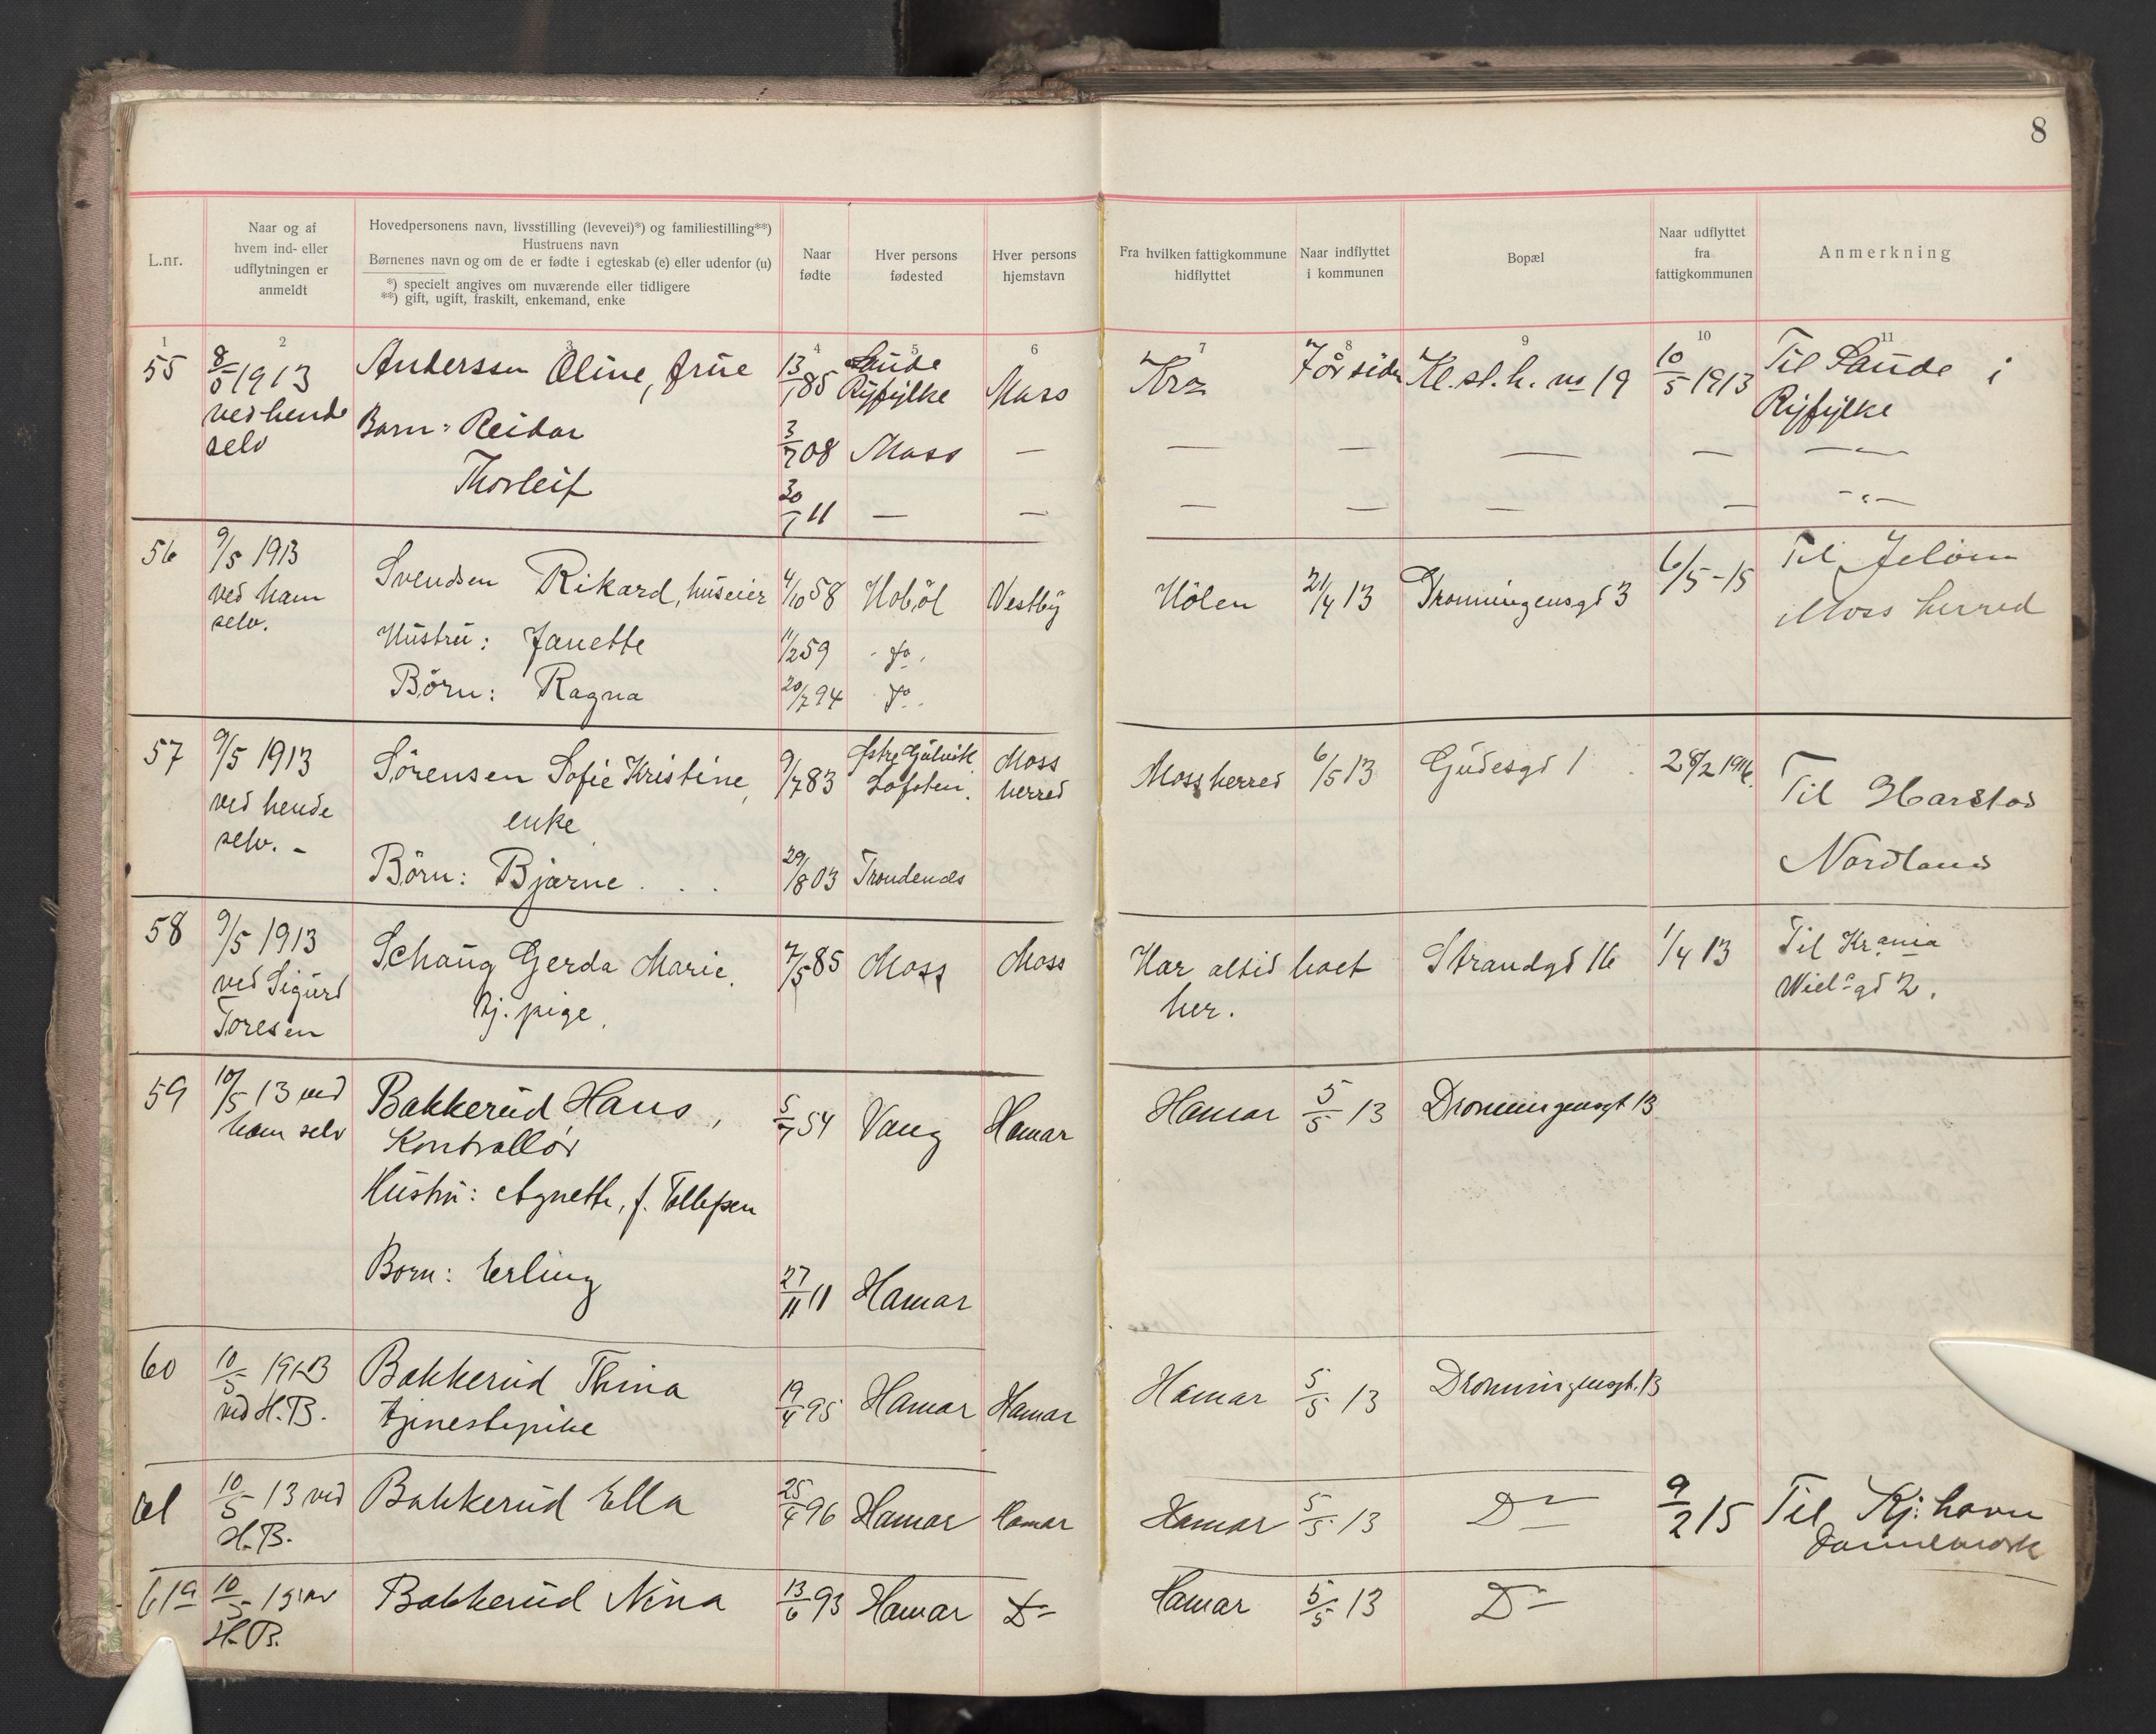 8
L.nr.
Naar og af
hvem ind- eller
udflytningen er
anmeldt
Hovedpersonens navn, livsstilling (levevei)*) og familiestilling**)
Hustruens navn
Børnenes navn og om de er fødte i egteskab (e) eller udenfor (u)
*) specielt angives om nuværende eller tidligere
**) gift, ugift, fraskilt, enkemand, enke
Naar
fødte
Hver persons
fødested
Hver persons
hjemstavn
Fra hvilken fattigkommune
hidflyttet
Naar indflyttet
i kommunen
Bopæl
Naar udflyttet
fra
fattigkommunen
Anmerkning
1 2 3 4 5 6 7 8 9 10 11
55 8/5 1913 Anderssen Oline, frue 13/1 85 Saude Moss Kra 7 år siden Kl. st. h. no 19 10/5 1913 Til Saude i
ved hende Ryfylke Ryfylke
selv Barn: Reidar 3/7 08 Moss — — — — — —
Thorleif 30/1 11 — — — — — — —
56 9/5 1913 Svendsen Rikard, huseier 4/10 58 Hobøl Vestby Hölen 21/4 13 Dronningensgd 3 6/5-15 Til Jeløen
ved ham Moss herred
selv. Hustru: Janette 11/2 59 do.
Börn: Ragna 20/7 94 do.
57 9/5 1913 Sörensen Sofie Kristine, 9/7 83 Østre Moss Moss herred 6/5 13 Gudesgd 1 28/2 1916. Til Harstad
ved hende enke Lofoten. herred Nordland
selv. - Börn: Bjarne 29/8 03 Trondenæs
58 9/5 1913 Schaug Gerda Marie. 7/5 85 Moss Moss Har altid boet Strandgd 16 1/4 13 Til Krania
ved Sigurd tj. pige. her. gd 2.
Toresen
59 10/5 13 ved Bakkerud Hans, 5/7 54 Vang Hamar Hamar 5/5 13 Dronningensgt 13
ham selv Kontrollör
Hustru: Agnethe, f. Tollefsen
Born: Erling 27/11 11 Hamar
60 10/5 1913 Bakkerud Thina 19/4 95 Hamar Hamar Hamar 5/5 13 Dronningensgt. 13
ved H.B. tjenestepike
61 10/5 13 ved Bakkerud Ella 25/4 96 Hamar Hamar Hamar 5/5 13 Do 9/2 15 Til Kj: havn
H.B. Dannemark
61a 10/5 13 ved Bakkerud Nina 13/6 93 Hamar Do Hamar 5/5 13 Do
H.B.